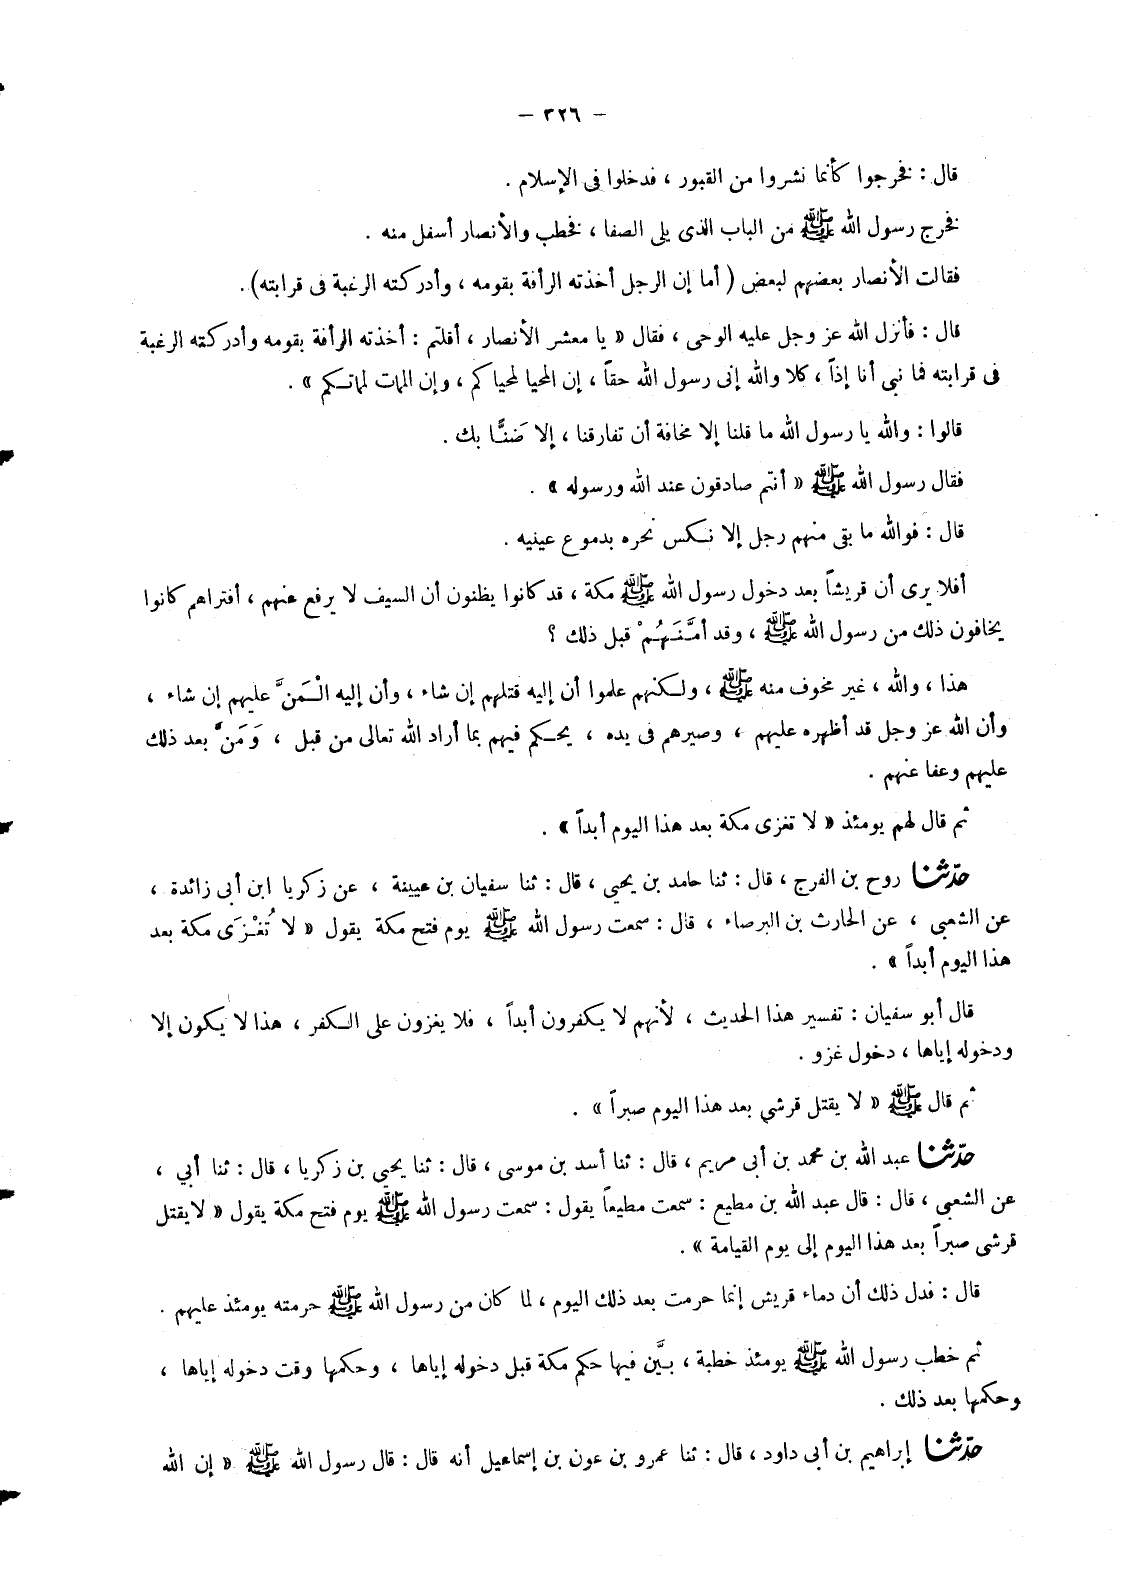 — ٣٢٦ —
قال : فخرجوا كأنما نشروا من القبور ، فدخلوا فى الإسلام .
فخرج رسول الله ﷺ من الباب الذى يلى الصفا ، فخطب والأنصار أسفل منه .
فقالت الأنصار بعضهم لبعض ( أما إن الرجل أخذته الرأفة بقومه ، وأدركته الرغبة فى قرابته) .
قال : فأنزل الله عز وجل عليه الوحى ، فقال « يا معشر الأنصار ، أقلتم : أخذته الرأفة بقومه وأدركته الرغبة
فى قرابته فما نبى أنا إذاً ، كلا والله إنى رسول الله حقاً ، إن المحيا لمحياكم ، وإن الممات لمماتكم » .
قالوا : والله يا رسول الله ما قلنا إلا مخافة أن تفارقنا ، إلا ضَنًّا بك .
فقال رسول الله ﷺ « أنتم صادقون عند الله ورسوله » .
قال : فوالله ما بقى منهم رجل إلا نكس نحره بدموع عينيه .
أفلا يرى أن قريشاً بعد دخول رسول الله ﷺ مكة ، قد كانوا يظنون أن السيف لا يرفع عنهم ، أفتراهم كانوا
يخافون ذلك من رسول الله ﷺ ، وقد أمَّنَهُمْ قبل ذلك ؟
هذا ، والله ، غير مخوف منه ﷺ ، ولكنهم علموا أن إليه قتلهم إن شاء ، وأن إليه الْمَنَّ عليهم إن شاء ،
وأن الله عز وجل قد أظهره عليهم ، وصيرهم فى يده ، يحكم فيهم بما أراد الله تعالى من قبل ، وَمَنَّ بعد ذلك
عليهم وعفا عنهم .
ثم قال لهم يومئذ « لا تغزى مكة بعد هذا اليوم أبداً » .
حدّثنا روح بن الفرج ، قال : ثنا حامد بن يحيى ، قال : ثنا سفيان بن عيينة ، عن زكريا ابن أبى زائدة ،
عن الشعبى ، عن الحارث بن البرصاء ، قال : سمعت رسول الله ﷺ يوم فتح مكة يقول « لا تُغْزَى مكة بعد
هذا اليوم أبداً » .
قال أبو سفيان : تفسير هذا الحديث ، لأنهم لا يكفرون أبداً ، فلا يغزون على الكفر ، هذا لا يكون إلا
ودخوله إياها ، دخول غزو .
ثم قال ﷺ « لا يقتل قرشي بعد هذا اليوم صبراً » .
حدّثنا عبد الله بن محمد بن أبى مريم ، قال : ثنا أسد بن موسى ، قال : ثنا يحيى بن زكريا ، قال : ثنا أبي ،
عن الشعبى ، قال : قال عبد الله بن مطيع : سمعت مطيعاً يقول : سمعت رسول الله ﷺ يوم فتح مكة يقول « لا يقتل
قرشى صبراً بعد هذا اليوم إلى يوم القيامة » .
قال : فدل ذلك أن دماء قريش إنما حرمت بعد ذلك اليوم ، لما كان من رسول الله ﷺ حرمته يومئذ عليهم .
ثم خطب رسول الله ﷺ يومئذ خطبة ، بيَّن فيها حكم مكة قبل دخوله إياها ، وحكمها وقت دخوله إياها ،
وحكمها بعد ذلك .
حدّثنا إبراهيم بن أبى داود ، قال : ثنا عمرو بن عون بن إسماعيل أنه قال : قال رسول الله ﷺ « إن الله